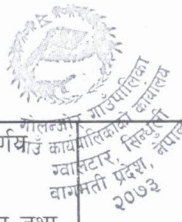 गोलन्जोर गाउँपालिका
गाउँ कार्यपालिकाको कार्यालय
ग्वालटार, सिन्धुली
बागमती प्रदेश, नेपाल
२०७३
र्णय
तथा